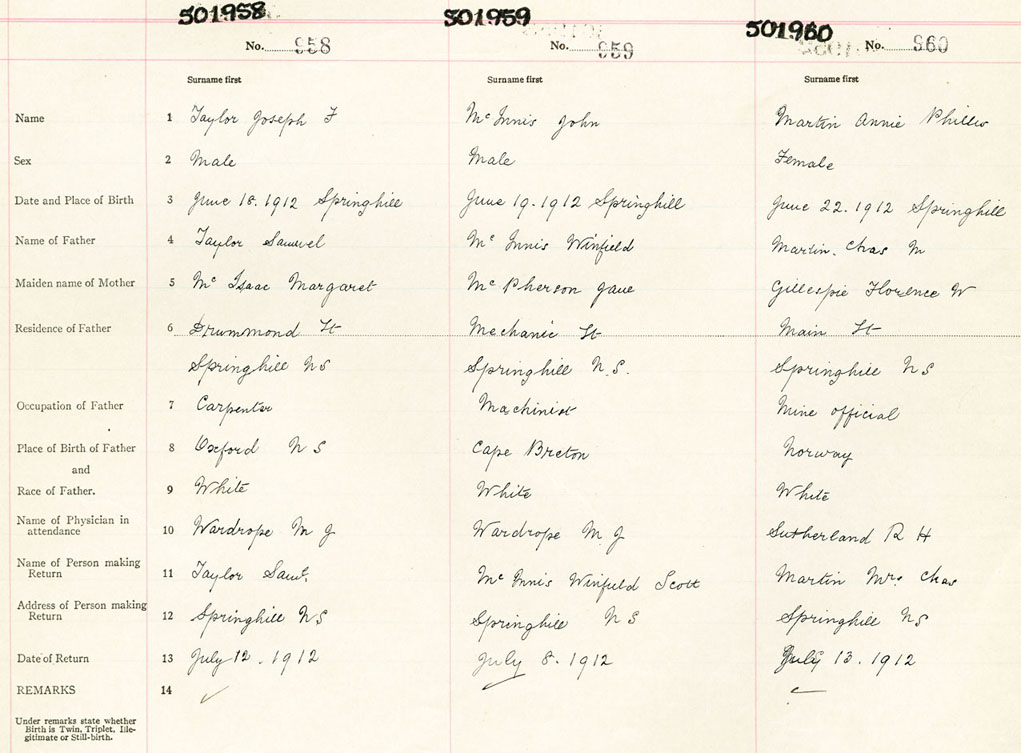 501958 501959 501960
No. 958 No. 959 No. 960
Surname first Surname first Surname first
Name 1 Taylor Joseph F Mc Innis John Martin Annie Phillis
Sex 2 Male Male Female
Date and Place of Birth 3 June 18. 1912 Springhill June 19. 1912 Springhill June 22. 1912 Springhill
Name of Father 4 Taylor Samuel Mc Innis Winfield Martin. Chas M
Maiden name of Mother 5 Mc Isaac Margaret Mc Pherson Jane Gillespie Florence W
Residence of Father 6 Drummond St Mechanic St Main St
Springhill NS Springhill N.S. Springhill NS
Occupation of Father 7 Carpenter Machinist Mine official
Place of Birth of Father 8 Oxford NS Cape Breton Norway
and
Race of Father. 9 White White White
Name of Physician in
attendance 10 Wardrope M J Wardrope M. J Sutherland R H
Name of Person making
Return 11 Taylor Saml. Mc Innis Winfield Scott Martin Mrs Chas
Address of Person making
Return 12 Springhill NS Springhill NS Springhill NS
Date of Return 13 July 12. 1912 July 8. 1912 July 13. 1912
REMARKS 14
Under remarks state whether
Birth is Twin, Triplet, Ille-
gitimate or Still-birth.